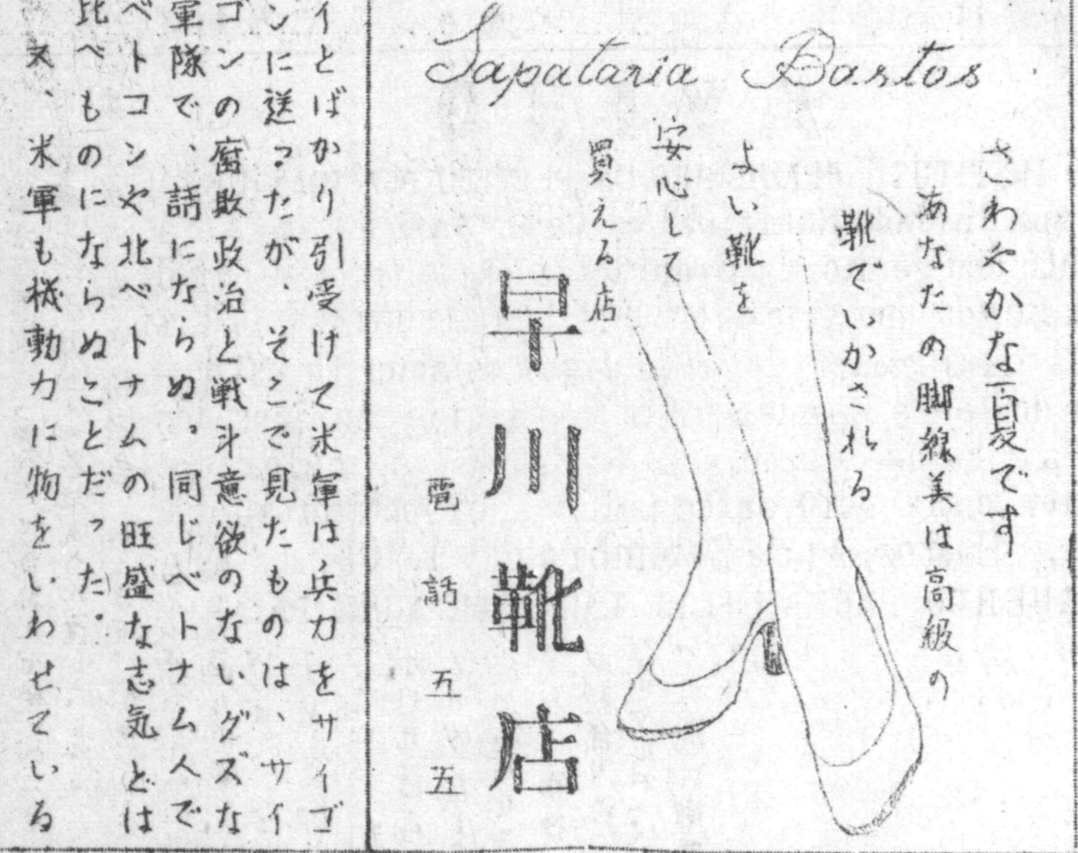 Sapataria Bastos
さわやかな夏です
あなたの脚線美は高級の
靴でいかされる
よい靴を
安心して
買える店
早川靴店
電話五五
イとばかり引受けて米軍は兵力をサイゴ
ンに送ったが、そこで見たものは、サイ
ゴンの腐敗政治と戦斗意欲のないグズな
軍隊で、話にならぬ。同じベトナム人で
ベトコンや北ベトナムの旺盛な志気とは
比べものにならぬことだった。
米軍も機動力に物をいわせている